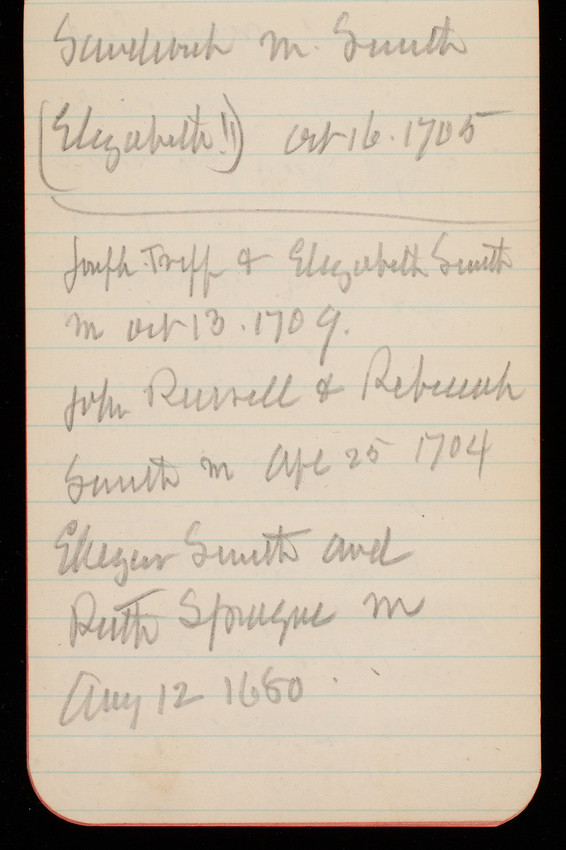 m. Smith
(Elizabeth!!) Oct 16. 1705
Joseph Tripp & Elizabeth Smith
m oct 13. 1709.
John Russell & Rebeccah
Smith m Apl 25 1704
Smith and
Ruth Sprague m
Aug 12 1680